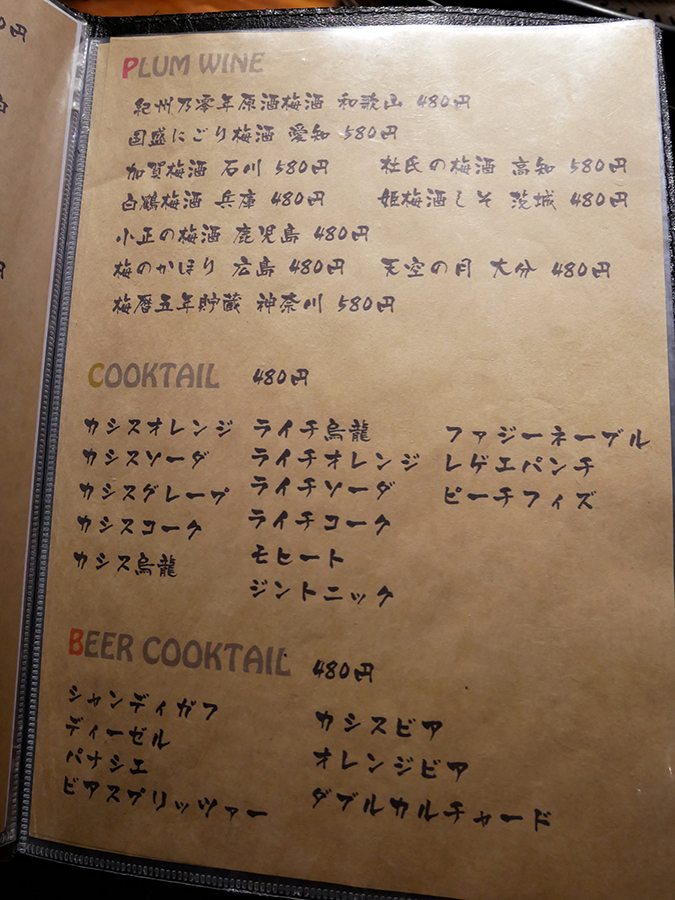 PLUM WINE
紀州乃零年原酒梅酒 和歌山 480円
国盛にごり梅酒 愛知 580円
加賀梅酒 石川 580円 杜氏の梅酒 高知 580円
白鶴梅酒 兵庫 480円 姫梅酒しそ 茨城 480円
小正の梅酒 鹿児島 480円
梅のかほり 広島 480円 天空の月 大分 480円
梅暦五年貯蔵 神奈川 580円
COOKTAIL 480円
カシスオレンジ ライチ烏龍 ファジーネーブル
カシスソーダ ライチオレンジ レゲエパンチ
カシスグレープ ライチソーダ ピーチフィズ
カシスコーク ライチコーク
カシス烏龍 モヒート
ジントニック
BEER COOKTAIL 480円
シャンディガフ カシスビア
ディーゼル オレンジビア
パナシエ ダブルカルチャード
ビアスプリッツァー